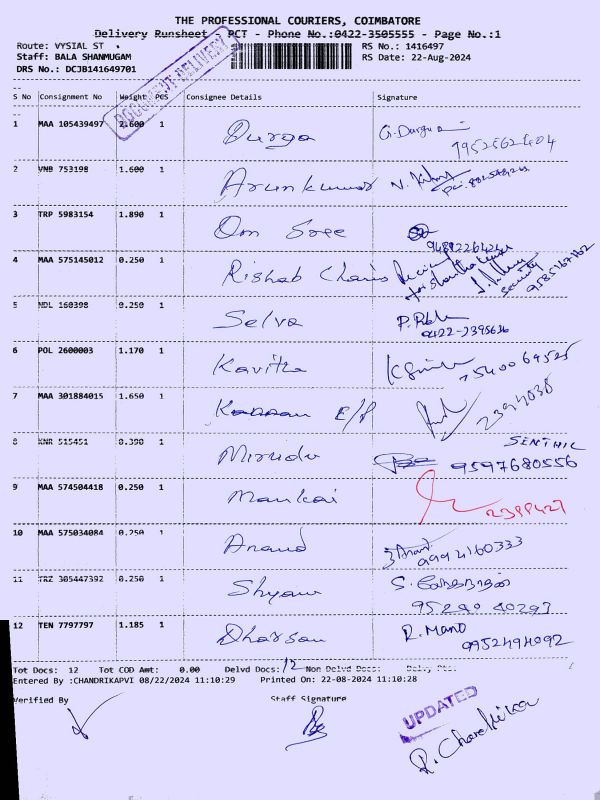 THE PROFESSIONAL COURIERS, COIMBATORE
Delivery Runsheet PCT - Phone No.:0422-3505555 - Page No.:1
Route: VYSIAL ST
RS No.: 1416497
Staff: BALA SHANMUGAM
RS Date: 22-Aug-2024
DRS No.: DCJB141649701
DOCUMENT DELIVERY
S No Consignment No Weight PCS Consignee Details Signature
1 MAA 105439497 2.600 1 Durga G. Durga
2 VNB 753198 1.600 1 Arunkumar
3 TRP 5983154 1.890 1 Om Sree
4 MAA 575145012 0.250 1 Rishab security
5 NDL 160398 0.250 1 Selva
0422-2395636
6 POL 2600003 1.170 1 Kavitha
7 MAA 301884015 1.650 1 Kannan E/P
8 KNR 515451 0.390 1 Mirudu SENTHIL
9597680556
9 MAA 574504418 0.250 1 Mankai
10 MAA 575034084 0.250 1 Anand Anand
9994160333
11 TRZ 305447392 0.250 1 Shyam
95290 40293
12 TEN 7797797 1.185 1 Dharsan R. Mano
9952494092
Tot Docs: 12 Tot COD Amt: 0.00 Delvd Docs: 12 Non Delvd Docs:
Entered By :CHANDRIKAPVI 08/22/2024 11:10:29 Printed On: 22-08-2024 11:10:28
Verified By Staff Signature
UPDATED